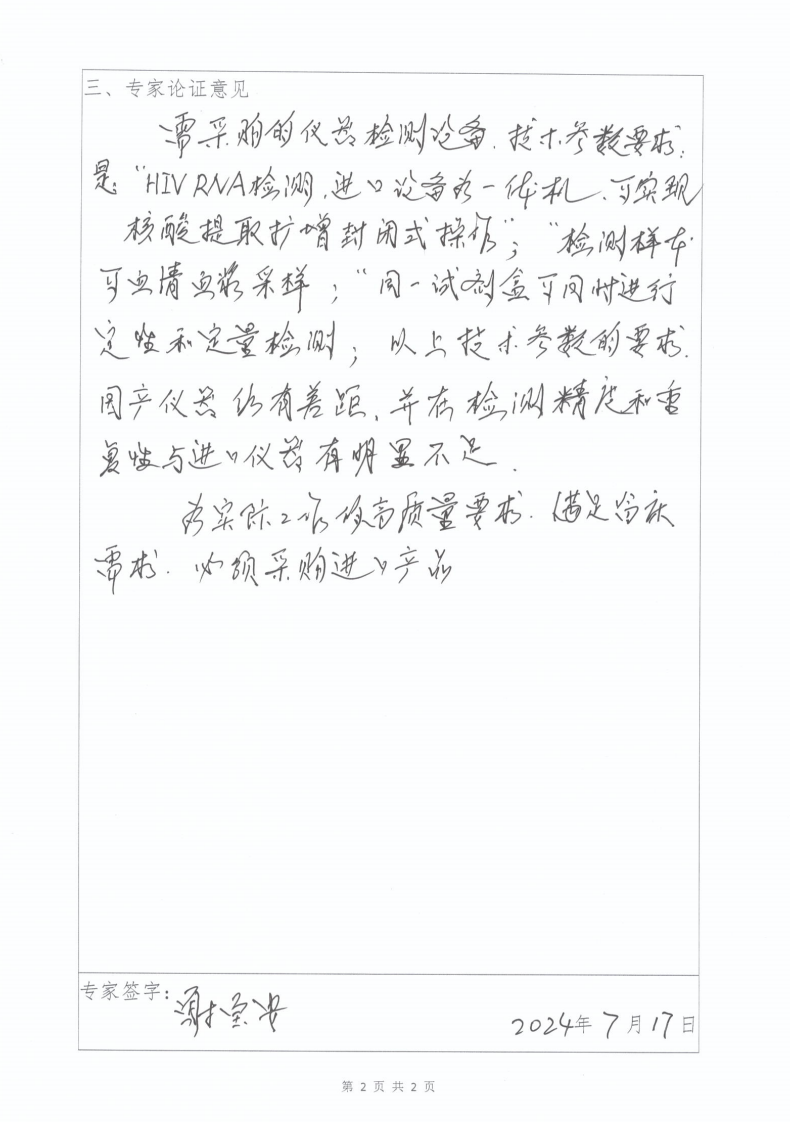 三、专家论证意见
需采购的仪器检测设备，技术参数要求：
是："HIV RNA检测，进口设备为一体机，可实现
核酸提取扩增封闭式操作"；"检测样本
可血清血浆采样；"同一试剂盒可同时进行
定性和定量检测；以上技术参数的要求，
国产仪器仍有差距，并在检测精度和重
复性与进口仪器有明显不足．
为实际工作的高质量要求，满足临床
需求．必须采购进口产品
专家签字：谢 安
2024年7月17日
第 2 页 共 2 页